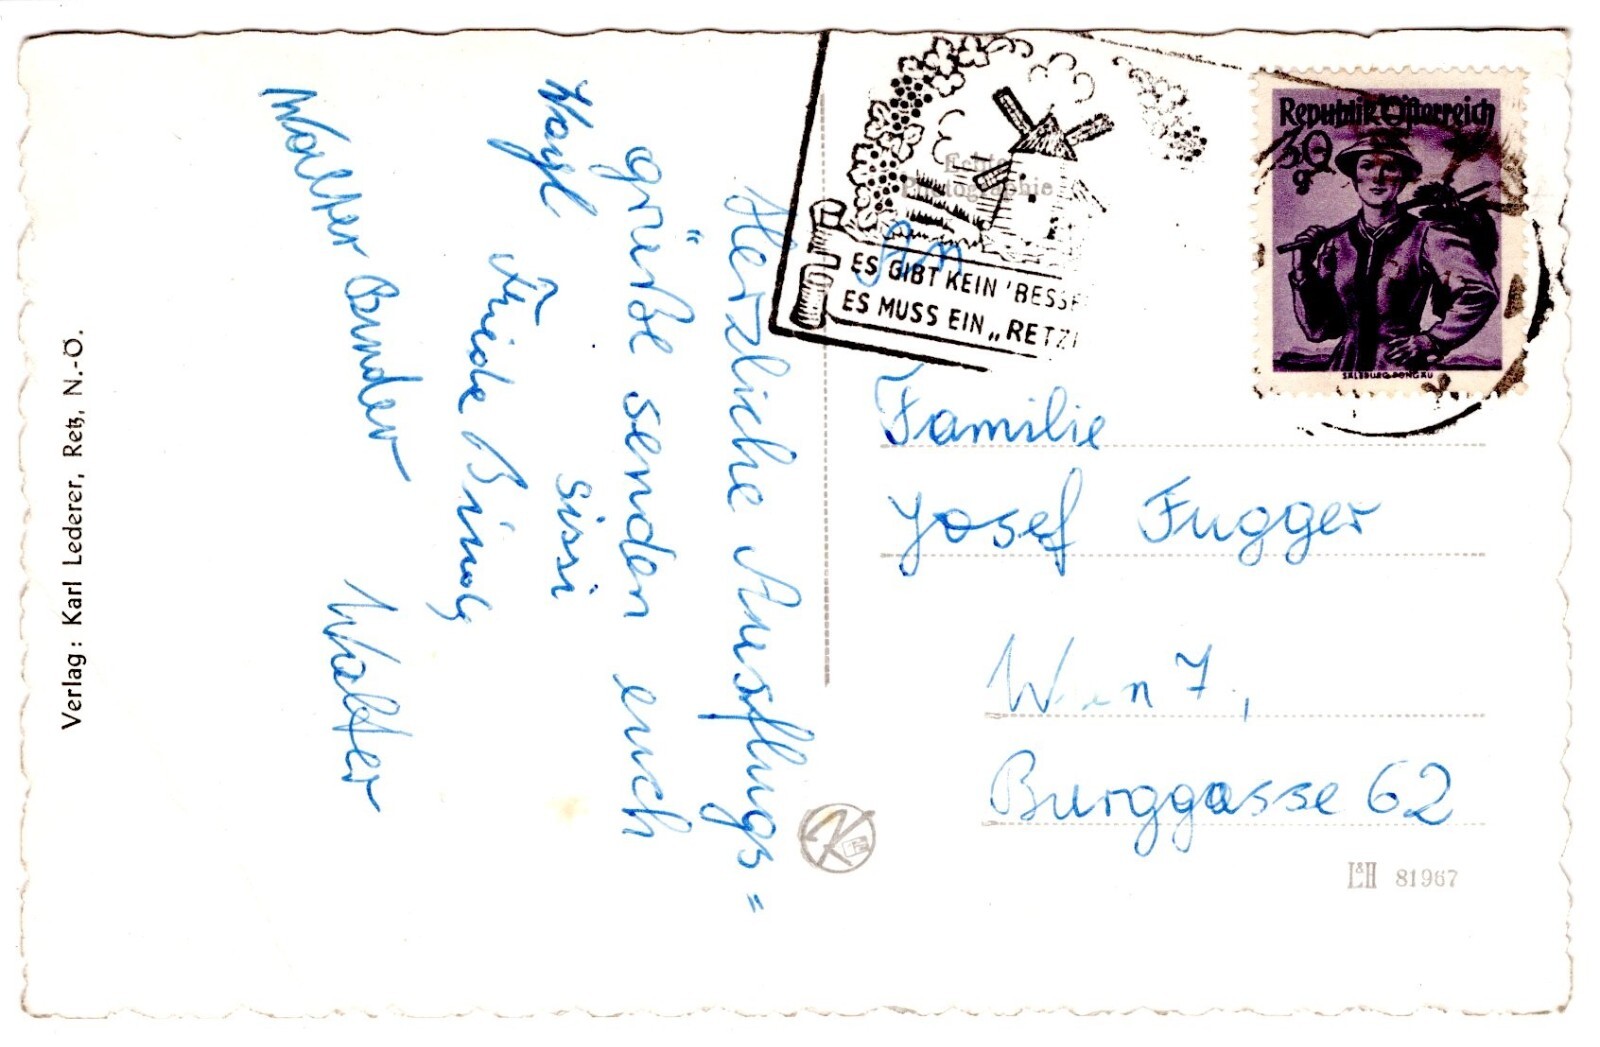 Verlag: Karl Lederer, Retz, N.-Ö.
Herzliche Ausflugs=
grüße senden euch
Sissi
Friede
Walter
Walter
Echte
Photographie
ES GIBT KEIN 'BESSE
ES MUSS EIN „RETZ
Republik Österreich
30
g
SALZBURG-PONGAU
An
Familie
Josef Fugger
Wien 7,
Burggasse 62
L&H 81967